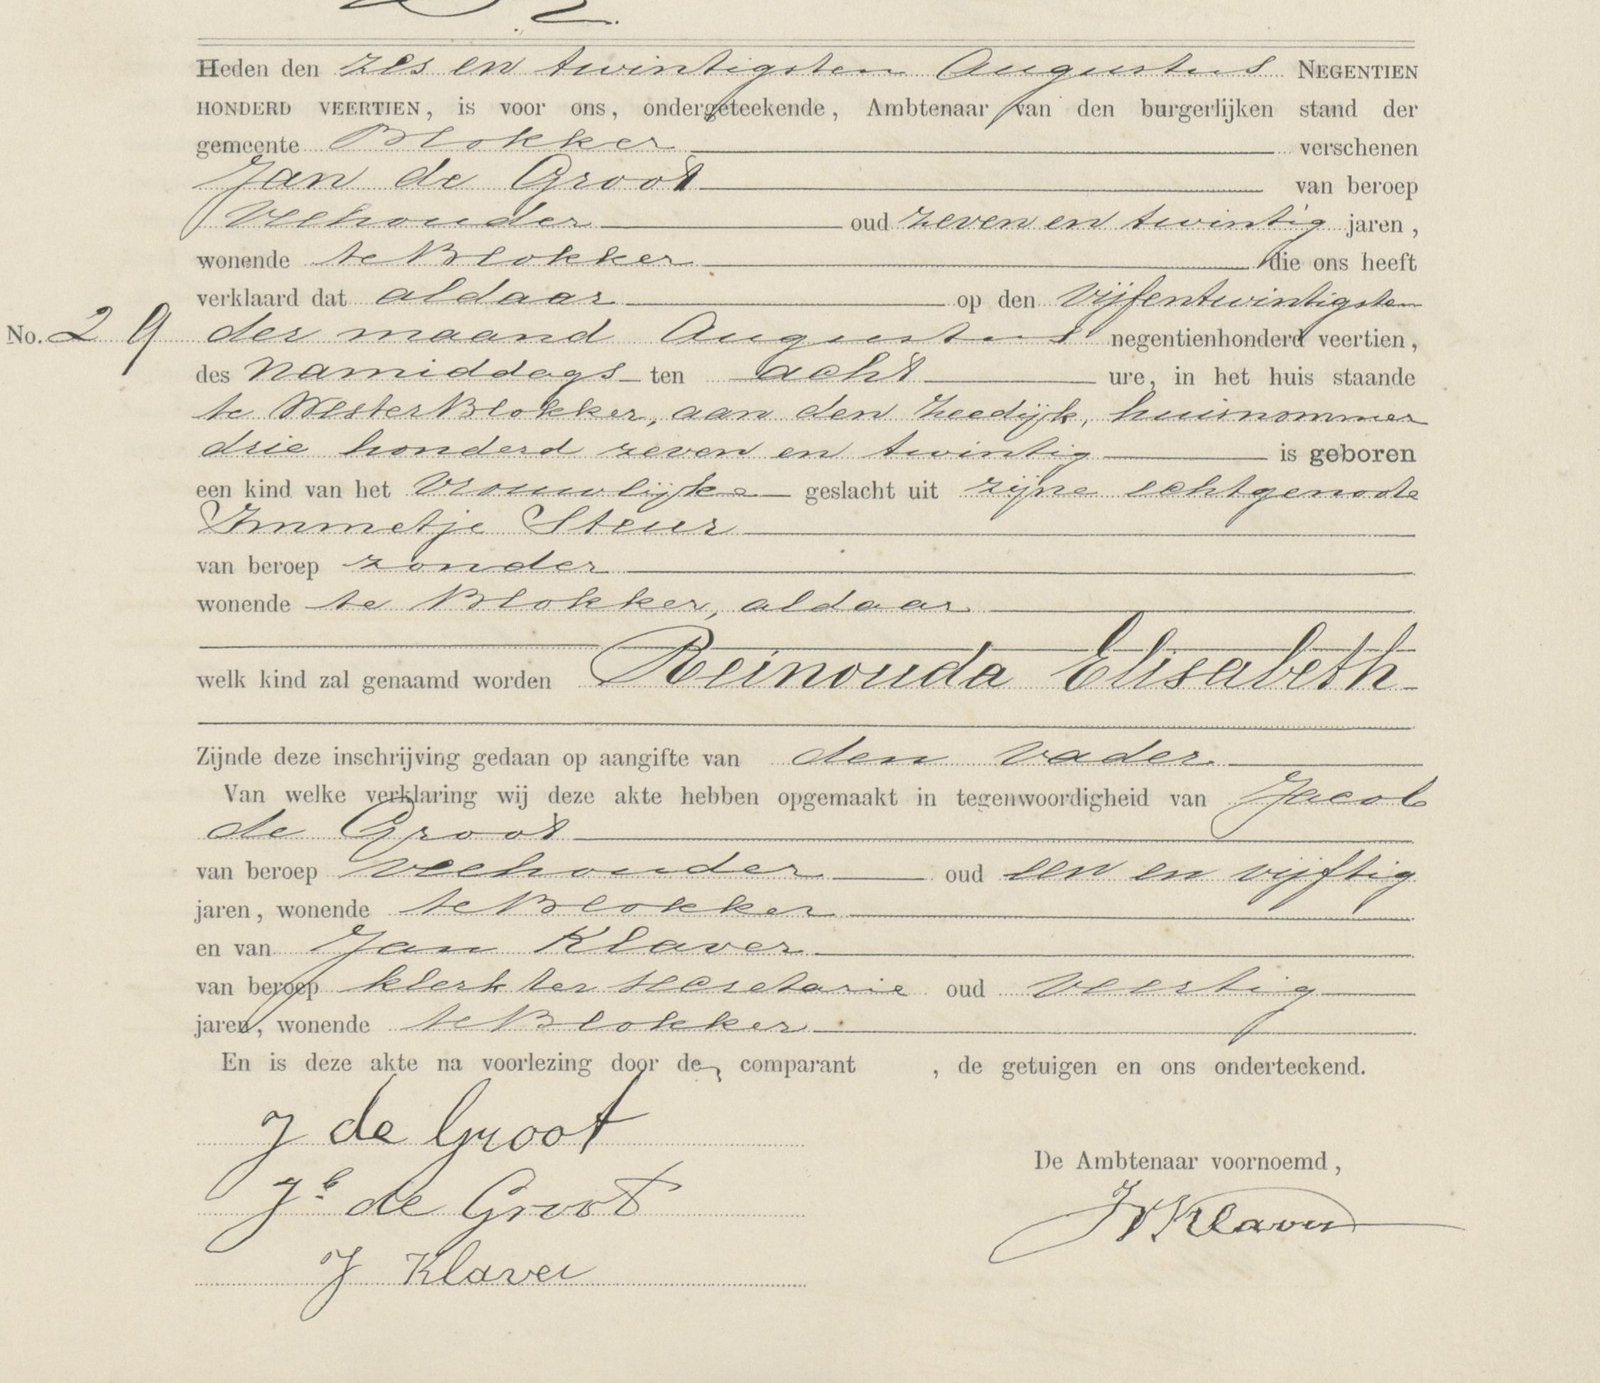 Heden den zes en twintigsten Augustus NEGENTIEN
HONDERD VEERTIEN, is voor ons, ondergeteekende, Ambtenaar van den burgerlijken stand der
gemeente Blokker verschenen
Jan de Groot van beroep
veehouder oud zeven en twintig jaren,
wonende te Blokker die ons heeft
verklaard dat aldaar op den vijfentwintigsten
No. 29 der maand Augustus negentienhonderd veertien,
des namiddags ten acht ure, in het huis staande
te Westerblokker, aan den Zeedijk, huisnommer
drie honderd zeven en twintig is geboren
een kind van het vrouwelijke geslacht uit zijne echtgenoote
Immetje Steur
van beroep zonder
wonende te Blokker, aldaar
welk kind zal genaamd worden Reinouda Elisabeth
Zijnde deze inschrijving gedaan op aangifte van den vader.
Van welke verklaring wij deze akte hebben opgemaakt in tegenwoordigheid van Jacob
de Groot
van beroep veehouder oud een en vijftig
jaren, wonende te Blokker
en van Jan Klaver
van beroep klerk ter secretarie oud veertig
jaren, wonende te Blokker
En is deze akte na voorlezing door de, comparant , de getuigen en ons onderteekend.
J de Groot
De Ambtenaar voornoemd,
Jb de Groot
Klaver
J Klaver